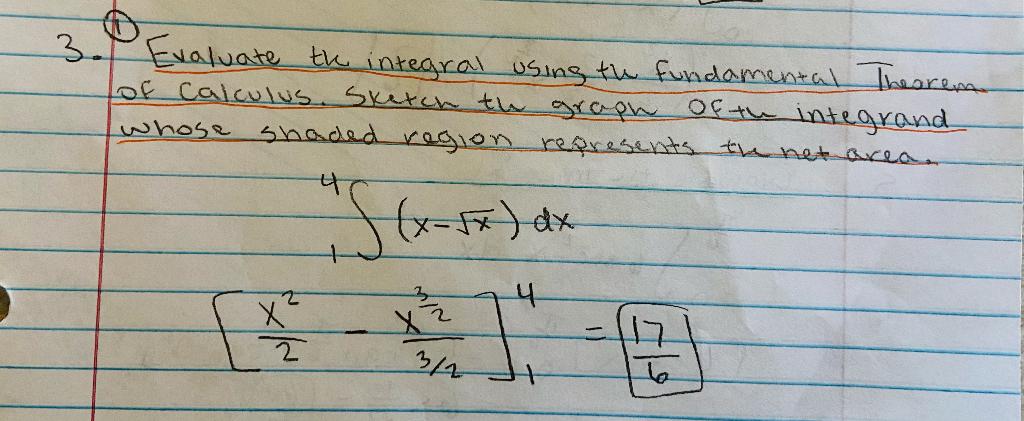 ①
3. Evaluate the integral using the Fundamental Theorem
of Calculus. Sketch the graph of the integrand
whose shaded region represents the net area.
4
∫ (x-√x) dx
1
[x²/2 - x^(3/2)/(3/2)]₁⁴ = 17/6